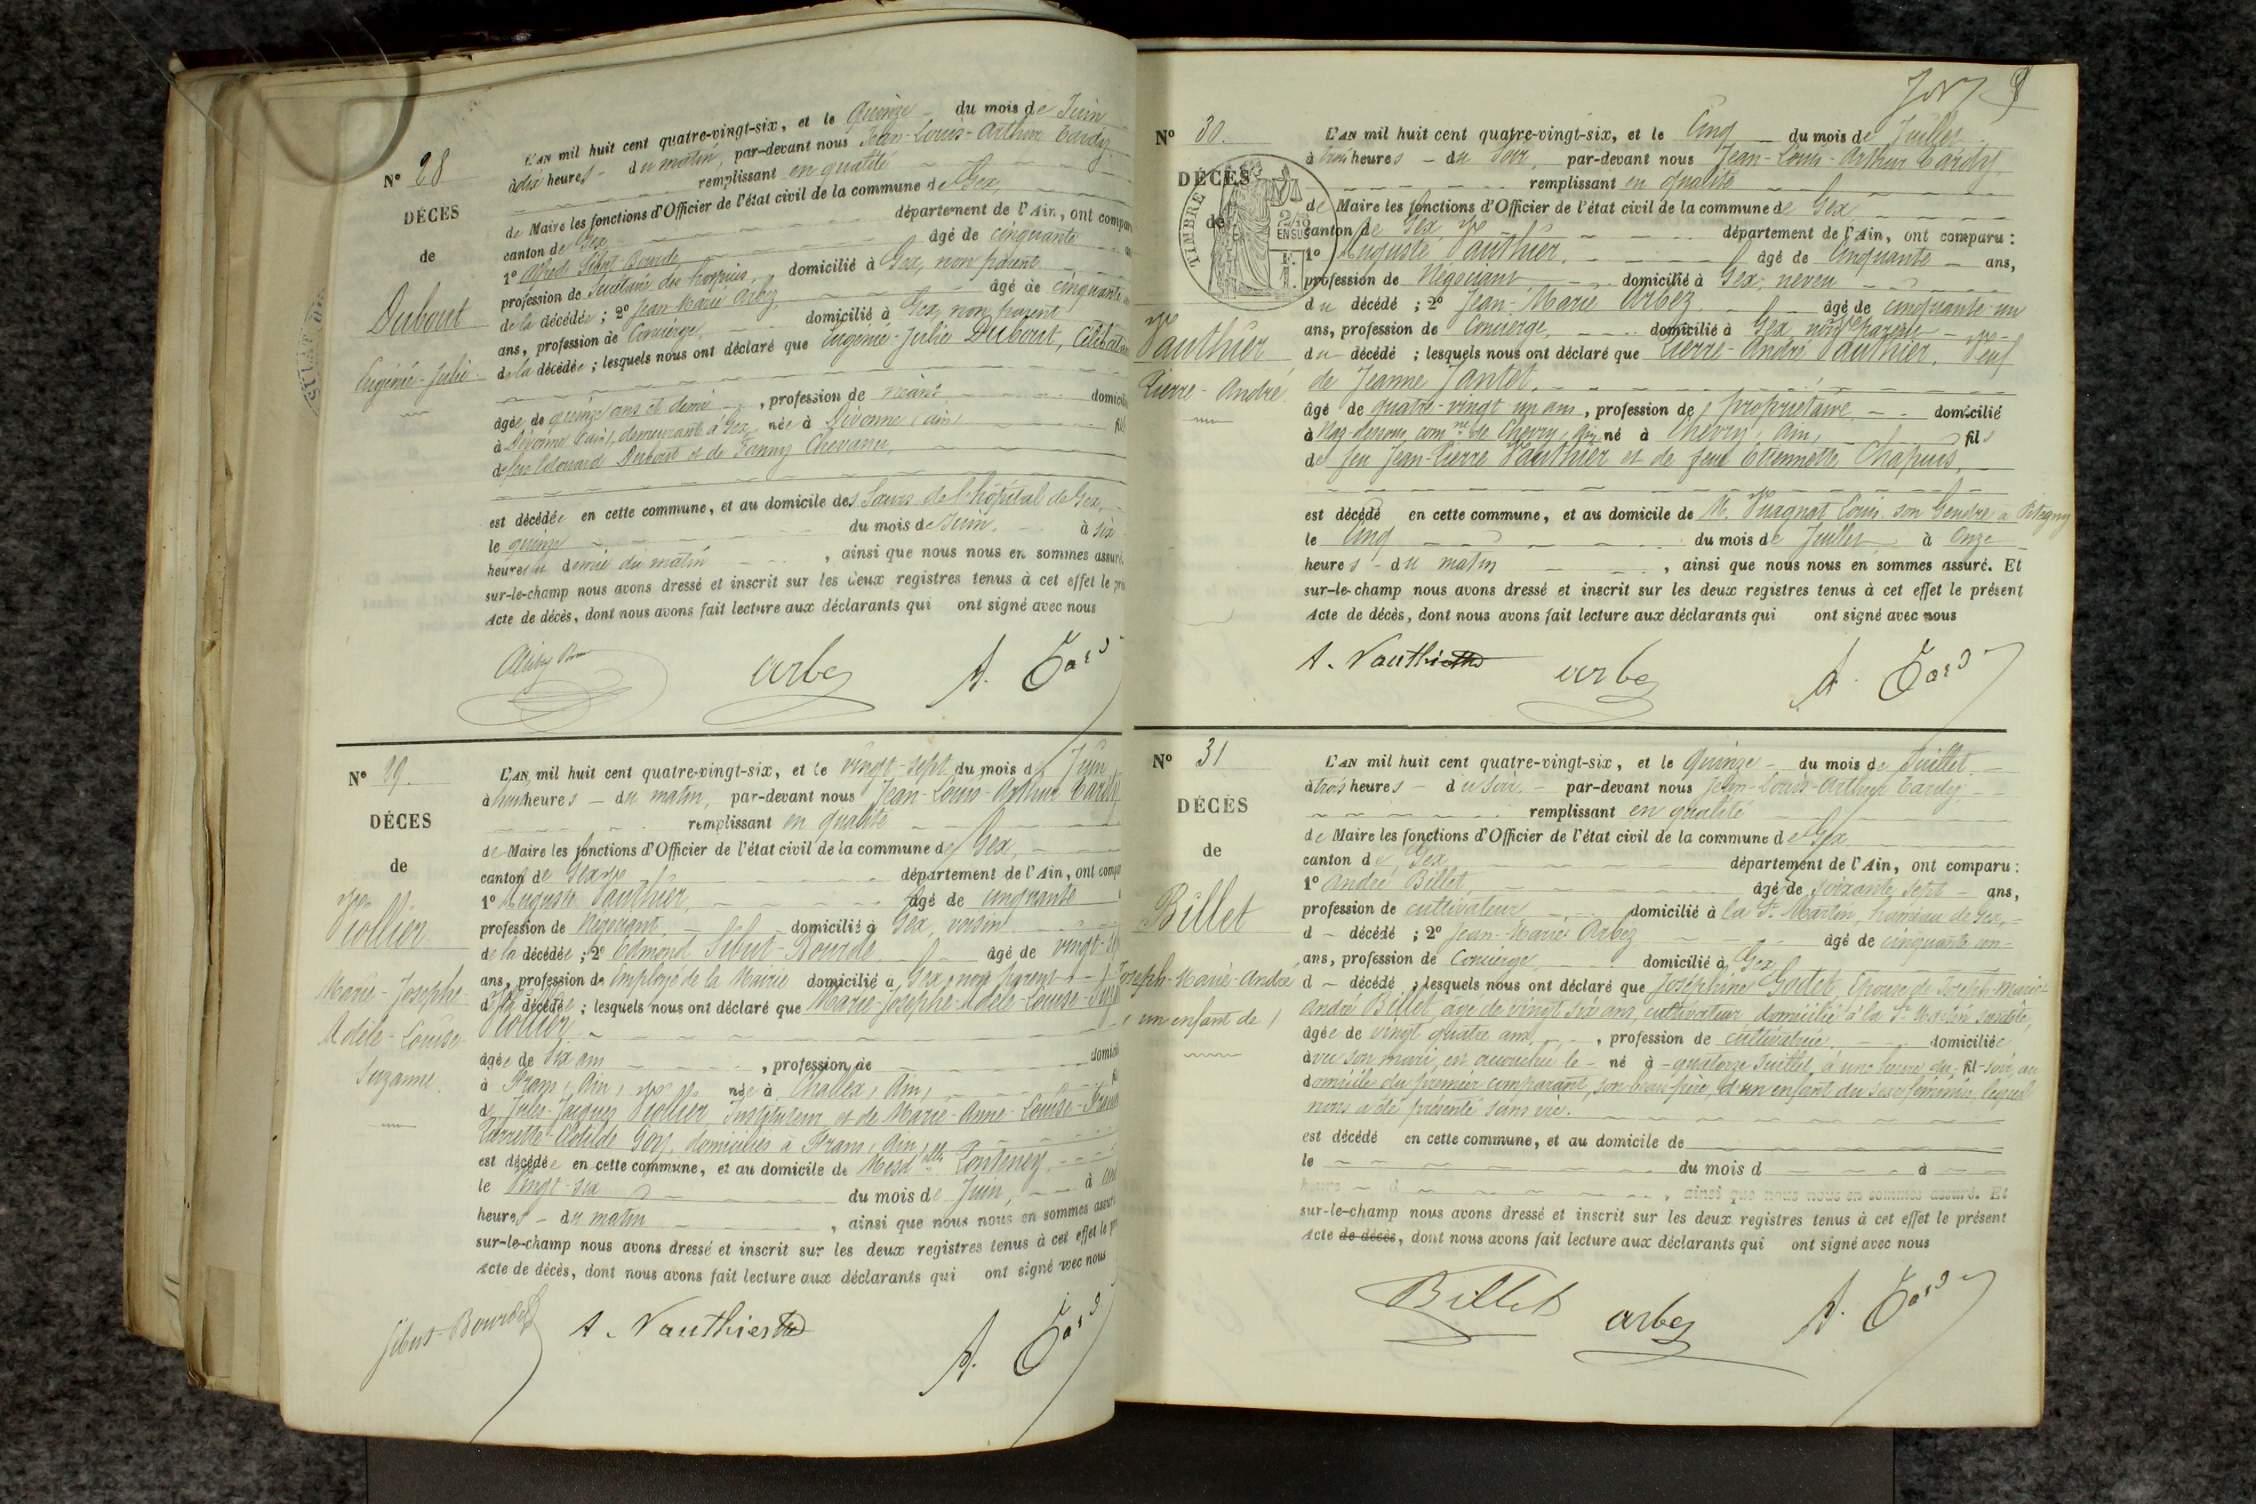 N° 28
DÉCES
de
Dubout
Eugénie-Julie
L'AN mil huit cent quatre-vingt-six, et le Quinze du mois de Juin
à dix heures du matin, par-devant nous Jean-Louis-Arthur Tardy
remplissant en qualité
de Maire les fonctions d'Officier de l'état civil de la commune de Gex,
canton de Gex département de l'Ain, ont compar
1° Alfred Sibut-Bourde âgé de cinquante
profession de Secrétaire des hospices, domicilié à Gex, non parent
de la décédée ; 2° Jean-Marie Arbez âgé de cinquante
ans, profession de Concierge, domicilié à Gex, non parent
de la décédée ; lesquels nous ont déclaré que Eugénie-Julie Dubout, Célibataire
âgée de quinze ans et demi, profession de néant domicilié
à Divonne (ain), demeurant à Gex, née à Divonne (ain)
de feu Edouard Dubout et de Fanny
est décédée en cette commune, et au domicile des Sœurs de l'hôpital de Gex,
le quinze du mois de Juin, à six
heures et demie du matin, ainsi que nous nous en sommes assuré.
sur-le-champ nous avons dressé et inscrit sur les deux registres tenus à cet effet le pr
Acte de décès, dont nous avons fait lecture aux déclarants qui ont signé avec nous
arbez A. Tardy
N° 29.
DÉCES
de
Viollier
Marie-Josephe-
Adèle-Louise-
Suzanne.
L'AN mil huit cent quatre-vingt-six, et le vingt-sept du mois de Juin
à huit heures du matin, par-devant nous Jean-Louis-Arthur Tardy
remplissant en qualité
de Maire les fonctions d'Officier de l'état civil de la commune de Gex,
canton de Gex département de l'Ain, ont comp
1° Auguste Vauthier, âgé de cinquante
profession de Négociant domicilié à Gex, voisin
de la décédée ; 2° Edmond Sibut-Bourde âgé de vingt-
ans, profession de Employé de la Mairie domicilié à Gex, non parent
de la décédée ; lesquels nous ont déclaré que Marie-Josephe-Adèle-Louise-Suz
Viollier
âgée de six ans, profession de domicilié
à (Ain), née à Challex (Ain),
de Jules-Jacques Viollier Instituteur et de Marie-Anne-Louise-
Pierrette-Clotilde Goy, domiciliés à (Ain)
est décédée en cette commune, et au domicile de Mesd.elles Pontenoy
le Vingt-six du mois de Juin, à
heures du matin, ainsi que nous nous en sommes assuré
sur-le-champ nous avons dressé et inscrit sur les deux registres tenus à cet effet le pr
Acte de décès, dont nous avons fait lecture aux déclarants qui ont signé avec nous
Sibut-Bourde A. Vauthier A. Tardy
N° 30.
DÉCES
de
TIMBRE
2/10 EN SUS
Vauthier
Pierre-André
L'AN mil huit cent quatre-vingt-six, et le Cinq du mois de Juillet
à trois heures du soir, par-devant nous Jean-Louis-Arthur Tardy,
remplissant en qualité
de Maire les fonctions d'Officier de l'état civil de la commune de Gex
canton de Gex département de l'Ain, ont comparu :
1° Auguste Vauthier, âgé de Cinquante ans,
profession de Négociant domicilié à Gex, neveu
du décédé ; 2° Jean-Marie Arbez âgé de cinquante-un
ans, profession de Concierge, domicilié à Gex, non parent
du décédé ; lesquels nous ont déclaré que Pierre-André Vauthier, Veuf
de Jeanne Jantet,
âgé de quatre-vingt un ans, profession de propriétaire domicilié
à Naz-dessous, com.ne de Chevry, Ain né à Chevry, Ain, fils
de feu Jean-Pierre Vauthier et de feue Etiennette Chapuis,
est décédé en cette commune, et au domicile de M. Vuagnat Louis son Gendre à Pitegny
le Cinq du mois de Juillet à Onze
heures du matin, ainsi que nous nous en sommes assuré. Et
sur-le-champ nous avons dressé et inscrit sur les deux registres tenus à cet effet le présent
Acte de décès, dont nous avons fait lecture aux déclarants qui ont signé avec nous
A. Vauthier arbez A. Tardy
N° 31
DÉCES
de
Billet
Joseph-Marie-André
(un enfant de)
L'AN mil huit cent quatre-vingt-six, et le Quinze du mois de Juillet
à trois heures du soir par-devant nous Jean-Louis-Arthur Tardy
remplissant en qualité
de Maire les fonctions d'Officier de l'état civil de la commune de Gex
canton de Gex département de l'Ain, ont comparu :
1° André Billet, âgé de soixante sept ans,
profession de cultivateur domicilié à la St Martin, hameau de Gex,
d décédé ; 2° Jean-Marie Arbez âgé de cinquante un
ans, profession de Concierge domicilié à Gex
d décédé ; lesquels nous ont déclaré que Joséphine Godet, Epouse de Joseph-Marie-
André Billet, âgé de vingt six ans, cultivateur domicilié à la St Martin susdite,
âgée de vingt quatre ans, profession de cultivatrice domiciliée
avec son mari, est accouchée le né à quatorze Juillet, à une heure du fil soir, au
domicile du premier comparant, son beau père, d'un enfant du sexe féminin lequel
nous a été présenté sans vie.
est décédé en cette commune, et au domicile de
le du mois d à
heure d, ainsi que nous nous en sommes assuré. Et
sur-le-champ nous avons dressé et inscrit sur les deux registres tenus à cet effet le présent
Acte de décès, dont nous avons fait lecture aux déclarants qui ont signé avec nous
Billet arbez A. Tardy